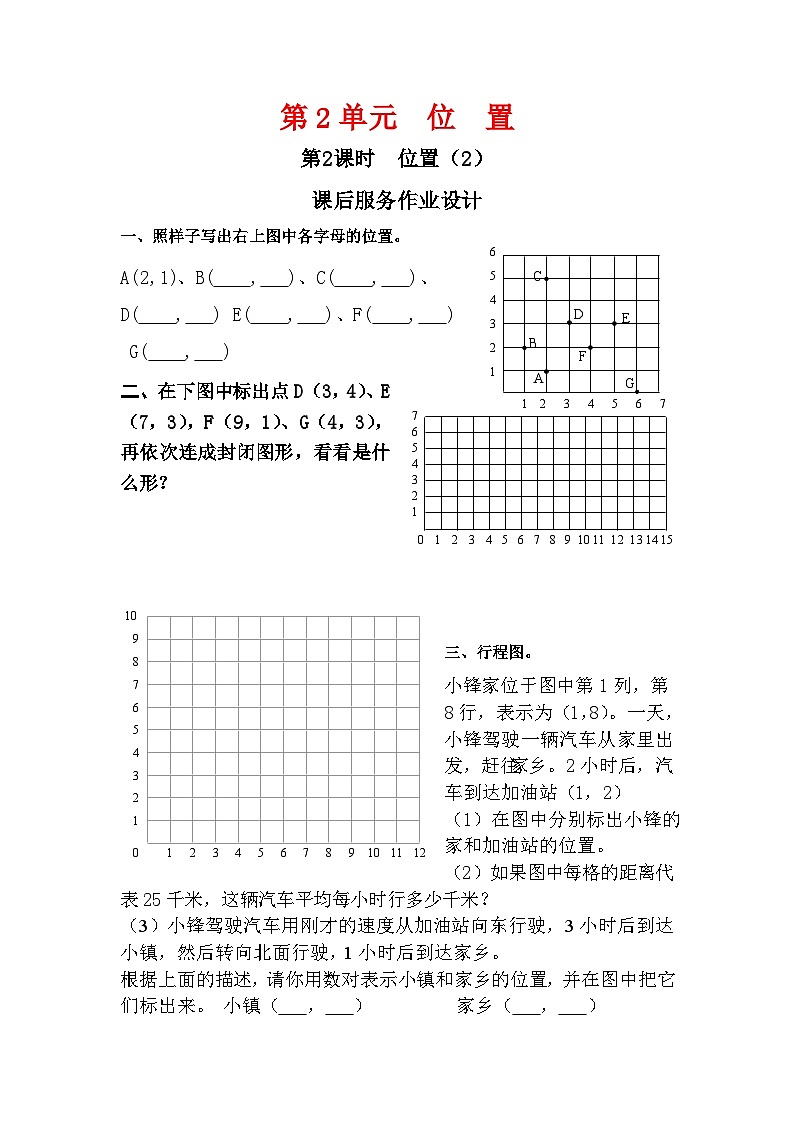 第2单元　位　置
第2课时　位置（2）
课后服务作业设计
一、照样子写出右上图中各字母的位置。
A(2,1)、B(____,___)、C(____,___)、
D(____,___) E(____,___)、F(____,___)
G(____,___)
6
5
4
3
2
1
C
D
E
B
F
A
G
1 2 3 4 5 6 7
二、在下图中标出点D（3，4）、E
（7，3），F（9，1）、G（4，3），
再依次连成封闭图形，看看是什
么形？
7
6
5
4
3
2
1
0 1 2 3 4 5 6 7 8 9 10 11 12 13 14 15
10
9
8
7
6
5
4
3
2
1
0 1 2 3 4 5 6 7 8 9 10 11 12
三、行程图。
小锋家位于图中第1列，第
8行，表示为（1,8）。一天，
小锋驾驶一辆汽车从家里出
发，赶往家乡。2小时后，汽
车到达加油站（1，2）
（1）在图中分别标出小锋的
家和加油站的位置。
（2）如果图中每格的距离代
表25千米，这辆汽车平均每小时行多少千米？
（3）小锋驾驶汽车用刚才的速度从加油站向东行驶，3小时后到达
小镇，然后转向北面行驶，1小时后到达家乡。
根据上面的描述，请你用数对表示小镇和家乡的位置，并在图中把它
们标出来。 小镇（___，___） 家乡（___，___）